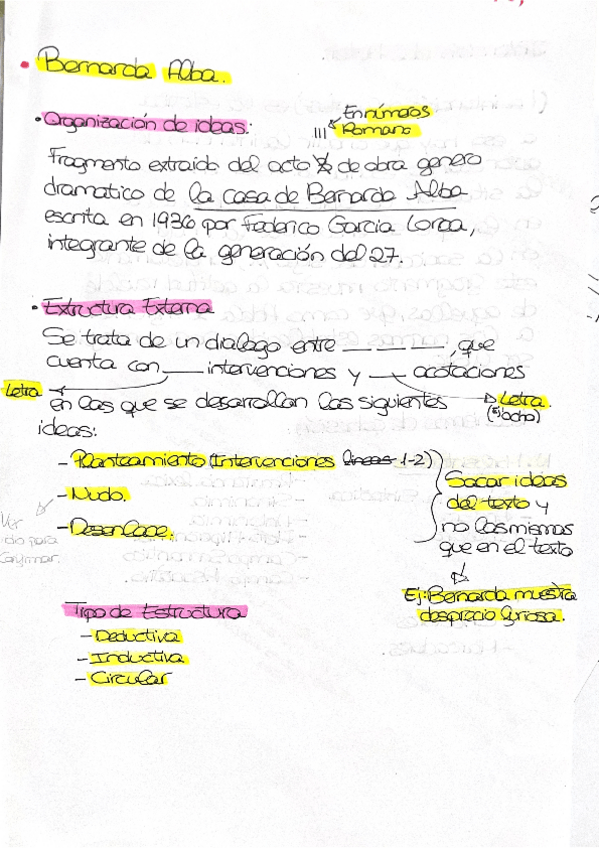 • Bernarda Alba.
• Organización de ideas:
En números
III Romano
Fragmento extraido del acto X de obra genero
dramatico de la casa de Bernarda Alba
escrita en 1936 por Federico Garcia Lorca,
integrante de la generación del 27.
• Estructura Externa
Se trata de un dialogo entre _ _ _ _, que
cuenta con __ intervenciones y __ acotaciones
Letra
en las que se desarrollan las siguientes
Letra.
(ej: ocho)
ideas:
- Planteamiento (Intervenciones lineas 1-2)
- Nudo.
- Desenlace.
Sacar ideas
del texto y
no las mismas
que en el texto
Ver
para
Ej: Bernarda muestra
desprecio
Tipo de Estructura
- Deductiva
- Inductiva
- Circular